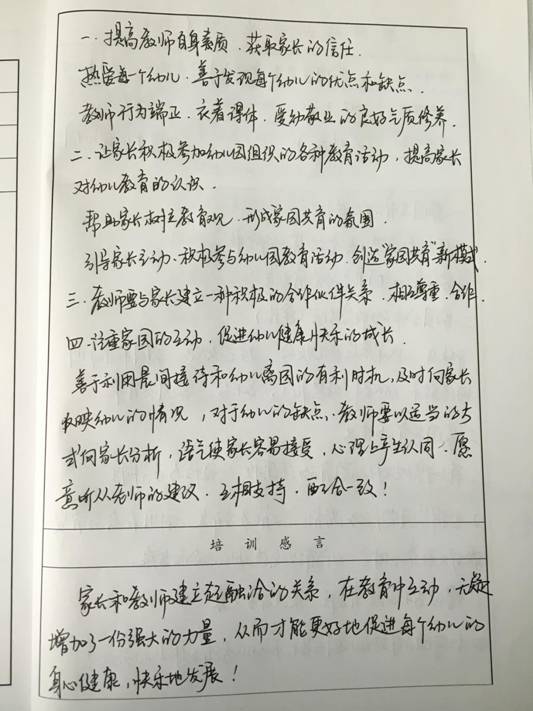 一.提高教师自身素质.获取家长的信任.
热爱每个幼儿.善于发现每个幼儿的优点和缺点.
教师行为端正.衣着得体.爱幼敬业的良好气质修养.
二.让家长积极参加幼儿园组织的各种教育活动,提高家长
对幼儿教育的认识.
帮助家长树立教育观.形成家园共育的氛围.
引导家长主动.积极参与幼儿园教育活动.创造"家园共育"新模式.
三.教师要与家长建立一种积极的合作伙伴关系.相互尊重.合作.
四.注重家园的互动,促进幼儿健康快乐的成长.
善于利用晨间接待和幼儿离园的有利时机,及时向家长
反映幼儿的情况,对于幼儿的缺点.教师要以适当的方
式向家长分析,语气使家长容易接受,心理上产生认同.愿
意听从老师的建议.互相支持.配合一致!
培训感言
家长和教师建立起融洽的关系,在教育中互动,无疑
增加了一份强大的力量,从而才能更好地促进每个幼儿的
身心健康,快乐地发展!